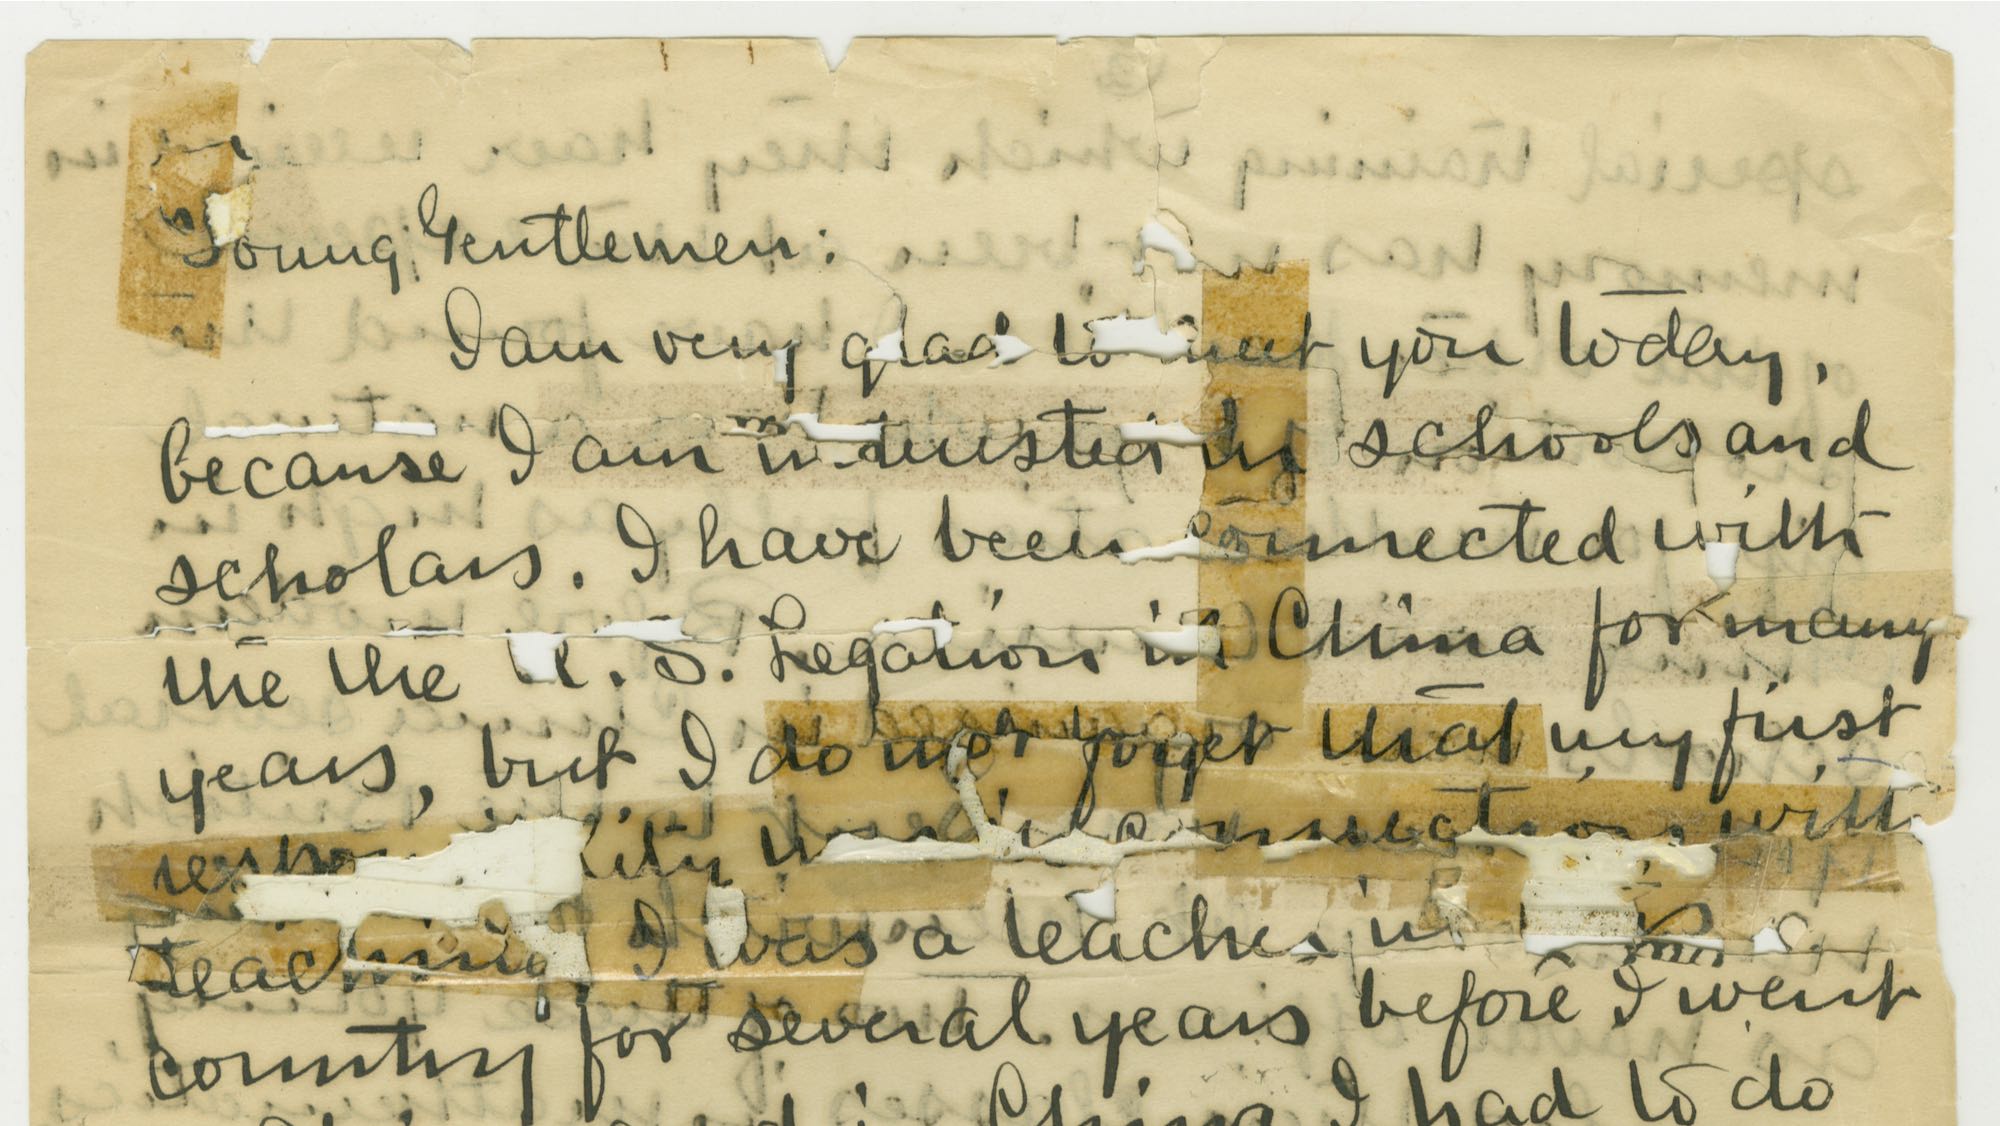 Young Gentlemen:
I am very glad to meet you today,
because I am interested in schools and
scholars. I have been connected with
the the U. S. Legation in China for many
years, but I do not forget that my first
responsibility was in connection with
teaching. I was a teacher in
country for several years before I went
and in China I had to do